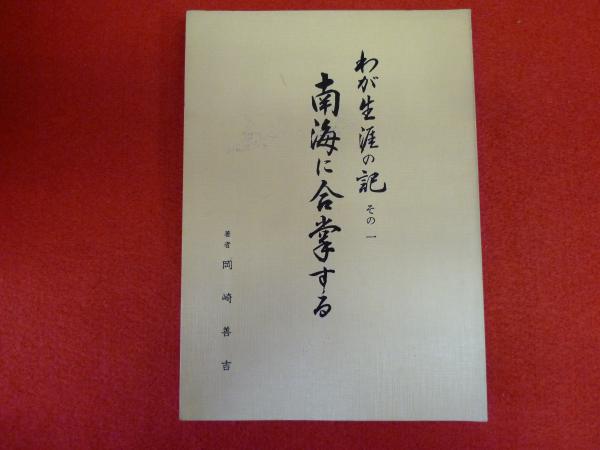 わが生涯の記 その一
南海に合掌する
著者 岡崎善吉